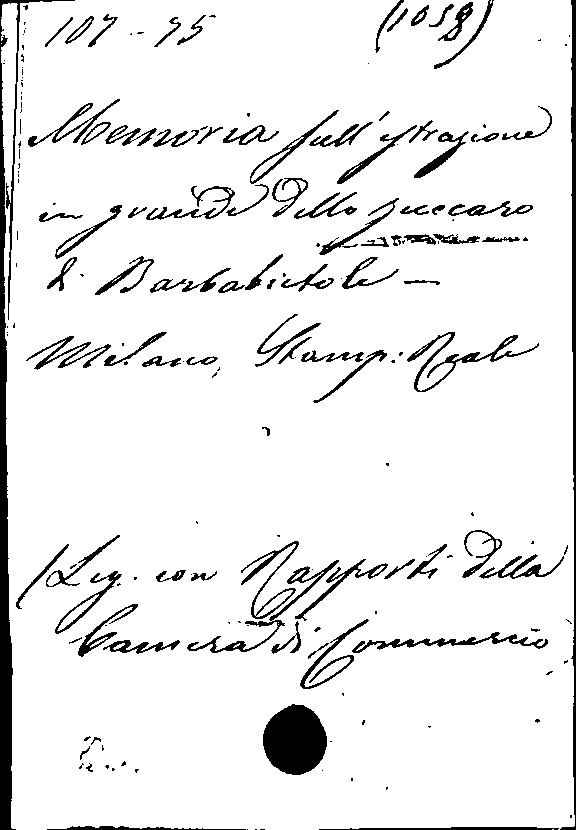 107-75 (1058)
Memoria sull'estrazione
in grande dello zuccaro
di Barbabietole —
Milano, Stamp: Reale
(Leg. con Rapporti della
Camera di Commercio